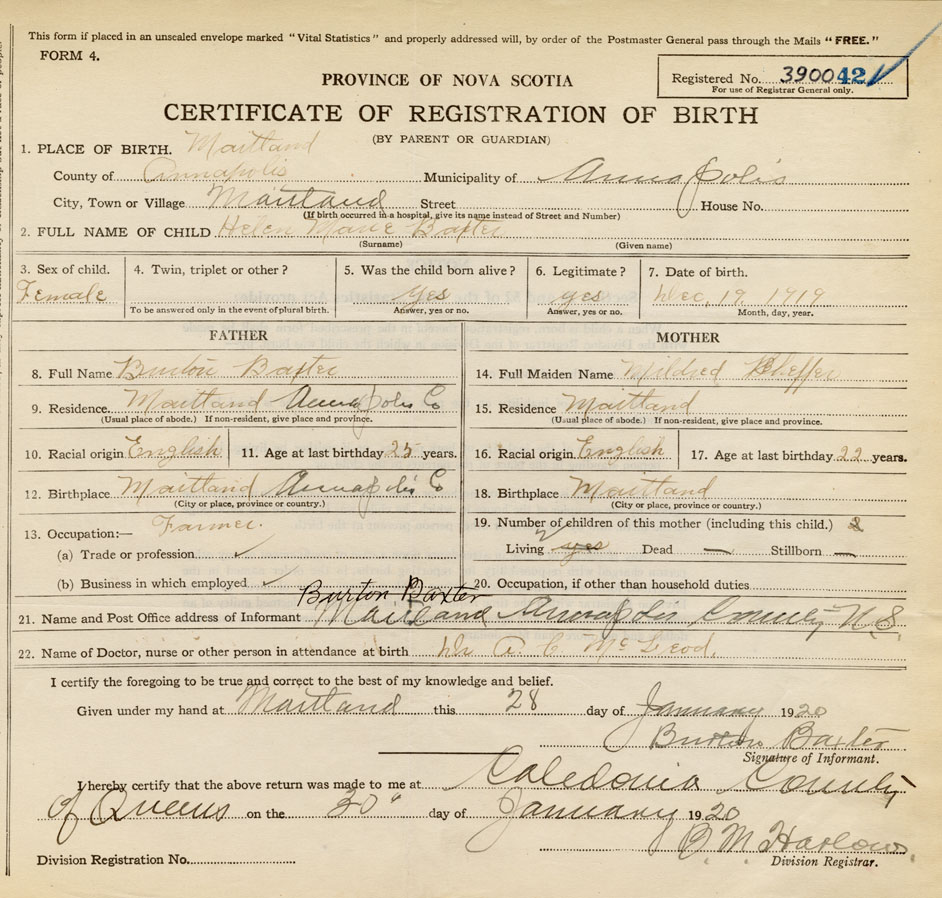 This form if placed in an unsealed envelope marked "Vital Statistics" and properly addressed will, by order of the Postmaster General pass through the Mails "FREE."
FORM 4.
PROVINCE OF NOVA SCOTIA
Registered No. 390042
For use of Registrar General only.
CERTIFICATE OF REGISTRATION OF BIRTH
(BY PARENT OR GUARDIAN)
1. PLACE OF BIRTH. Maitland
County of Annapolis Municipality of Annapolis
City, Town or Village Maitland Street House No.
(If birth occurred in a hospital, give its name instead of Street and Number)
2. FULL NAME OF CHILD Helen Marie Baxter
(Surname) (Given name)
3. Sex of child. 4. Twin, triplet or other? 5. Was the child born alive? 6. Legitimate? 7. Date of birth.
Female yes yes Dec. 19 1919
To be answered only in the event of plural birth. Answer, yes or no. Answer, yes or no. Month, day, year.
FATHER
8. Full Name Burton Baxter
9. Residence. Maitland Annapolis Co
(Usual place of abode.) If non-resident, give place and province.
10. Racial origin English 11. Age at last birthday 25 years.
12. Birthplace Maitland Annapolis Co
(City or place, province or country.)
13. Occupation:— Farmer.
(a) Trade or profession ✓
(b) Business in which employed ✓
MOTHER
14. Full Maiden Name Mildred
15. Residence Maitland
(Usual place of abode.) If non-resident, give place and province.
16. Racial origin English 17. Age at last birthday 22 years.
18. Birthplace Maitland
(City or place, province or country.)
19. Number of children of this mother (including this child.) 2
Living 2 yes Dead — Stillborn —
20. Occupation, if other than household duties
Burton Baxter
21. Name and Post Office address of Informant Maitland Annapolis County N.S.
22. Name of Doctor, nurse or other person in attendance at birth Dr A C McLeod.
I certify the foregoing to be true and correct to the best of my knowledge and belief.
Given under my hand at Maitland this 28 day of January 1920
Burton Baxter
Signature of Informant.
I hereby certify that the above return was made to me at Caledonia County
of Queens on the 30" day of January 1920
M Harlow
Division Registration No. Division Registrar.